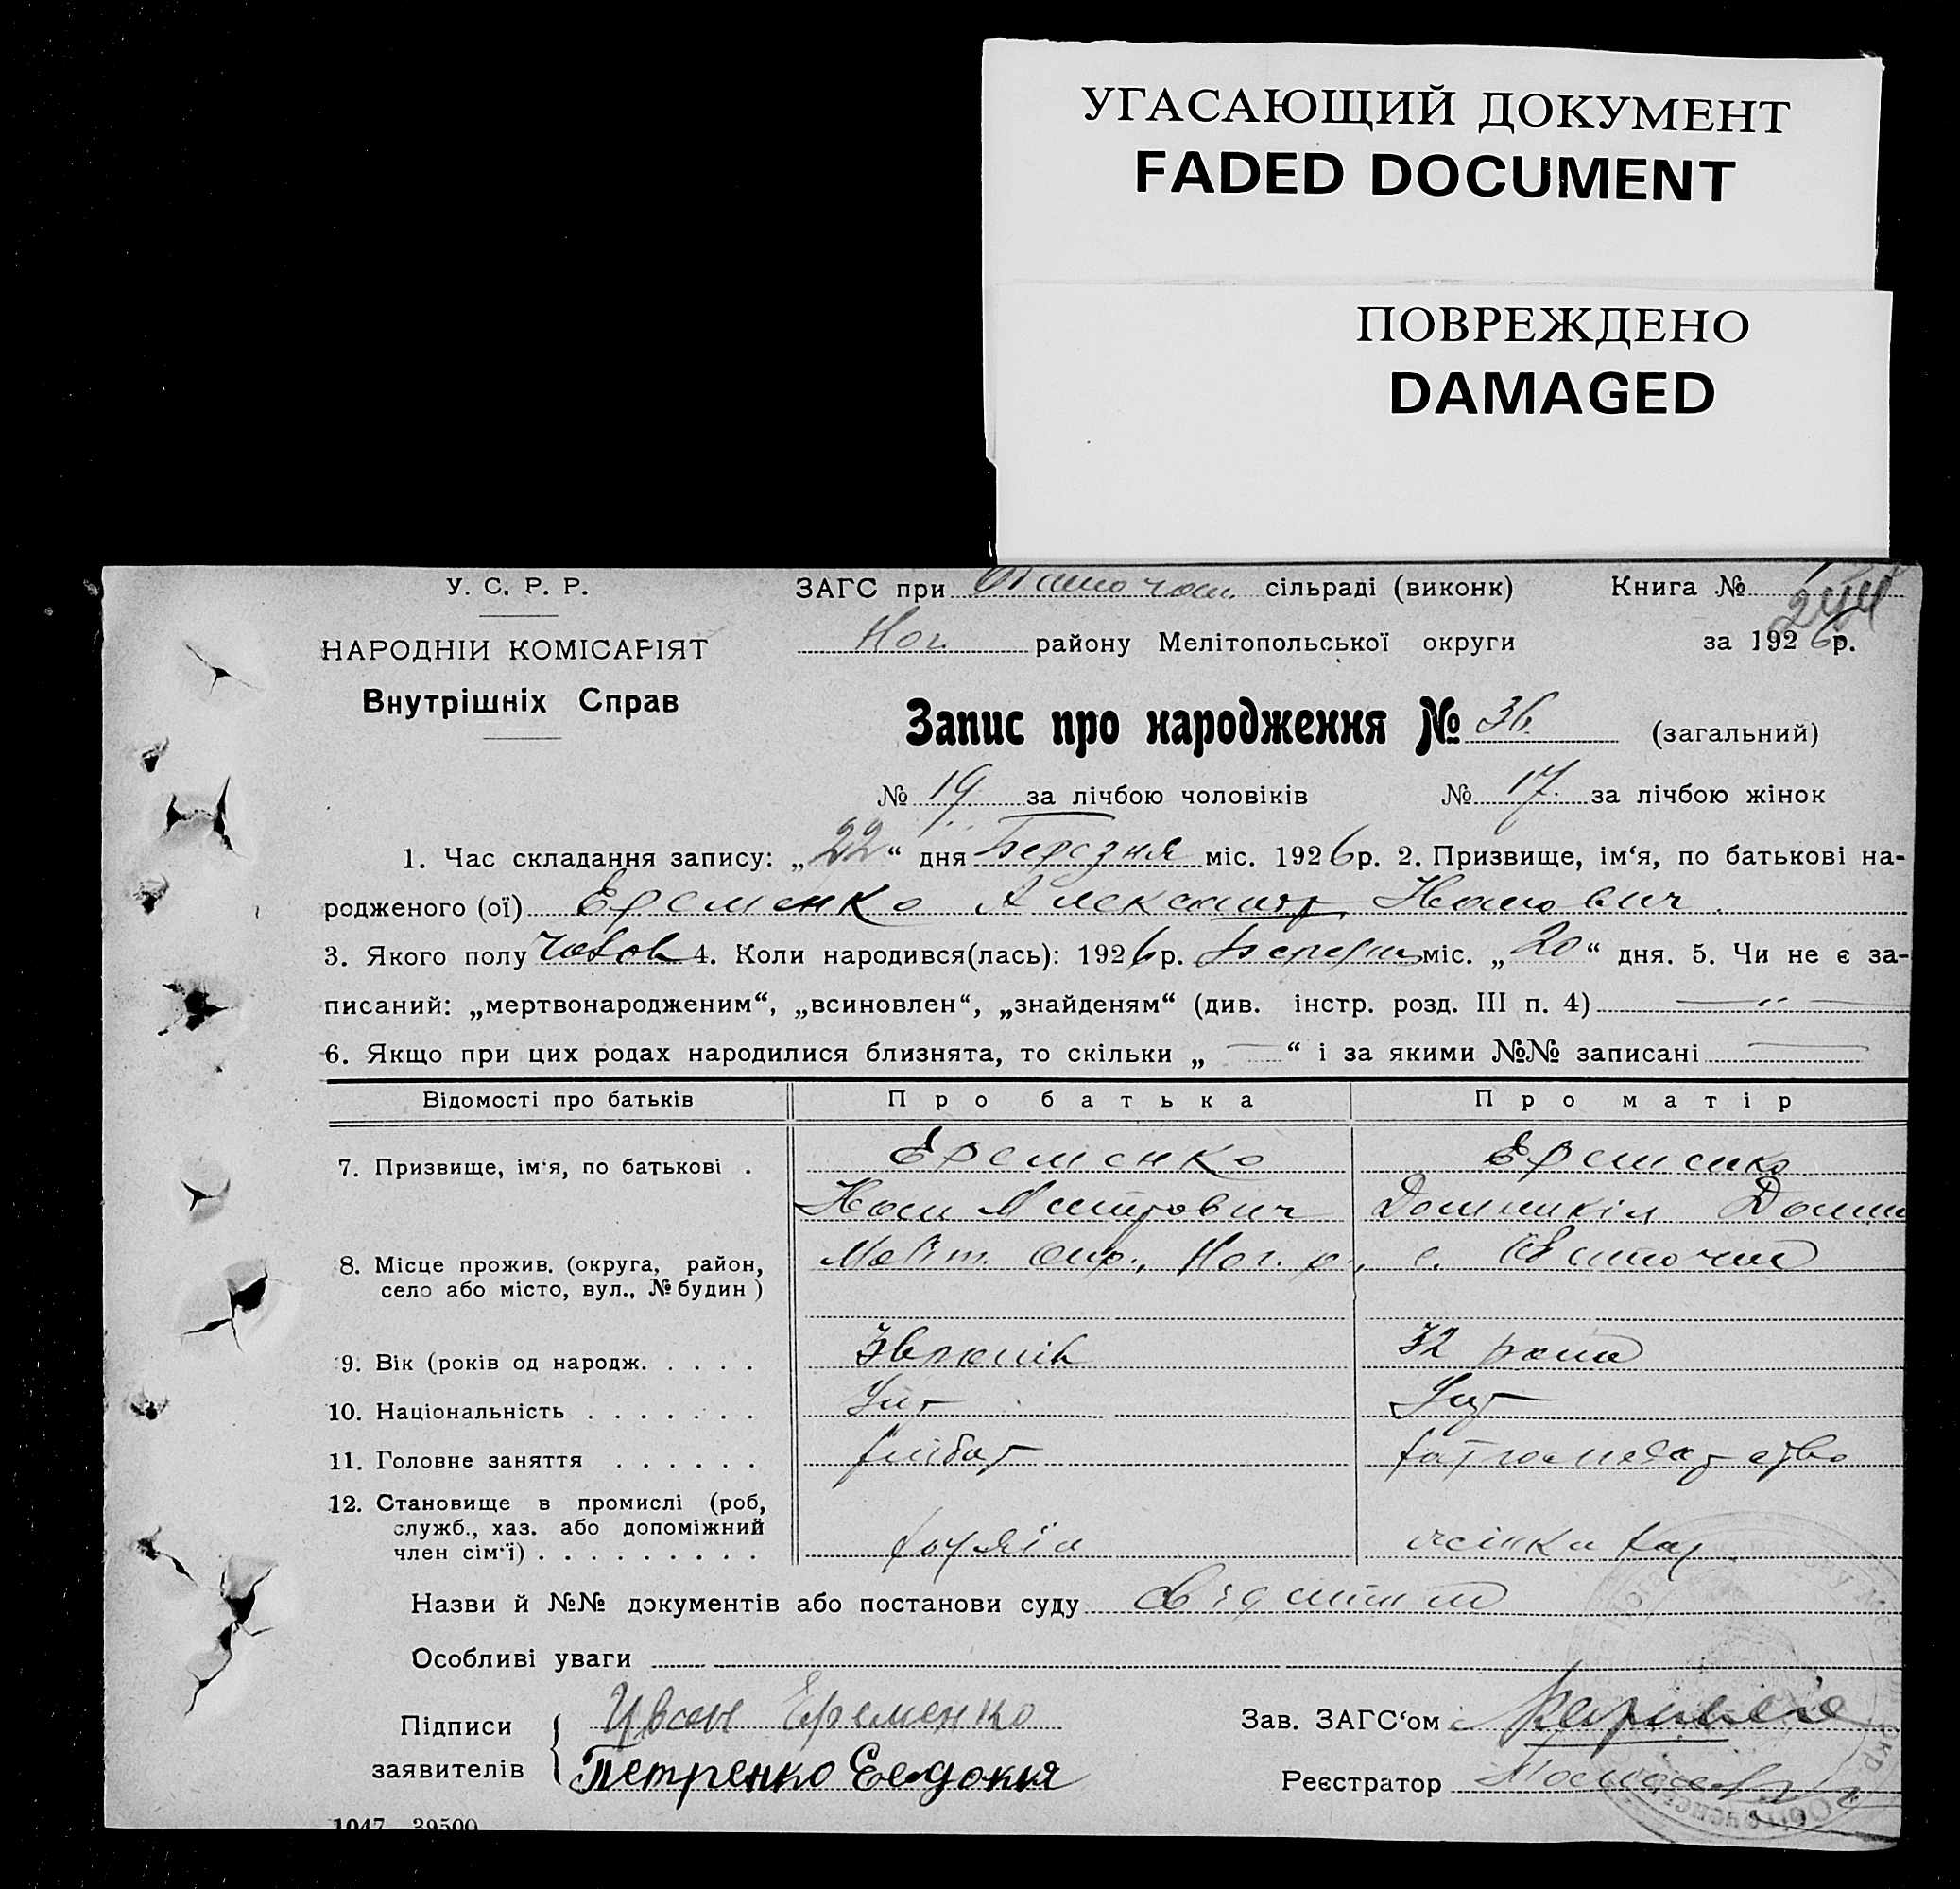 УГАСАЮЩИЙ ДОКУМЕНТ
FADED DOCUMENT
ПОВРЕЖДЕНО
DAMAGED
У. С. Р. Р. ЗАГС при сільраді (виконк) Книга № 244
НАРОДНІЙ КОМІСАРІЯТ Ног. району Мелітопольської округи за 1926 р.
Внутрішніх Справ
Запис про народження № 36 (загальний)
№ 19 за лічбою чоловіків № 17 за лічбою жінок
1. Час складання запису: „22“ дня Березня міс. 1926 р. 2. Призвище, ім‘я, по батькові на-
родженого (ої) Еременко Александр Иванович
3. Якого полу чолов 4. Коли народився(лась): 1926 р. Березня міс. „20“ дня. 5. Чи не є за-
писаний: „мертвонародженим“, „всиновлен“, „знайденям“ (див. інстр. розд. III п. 4)
6. Якщо при цих родах народилися близнята, то скільки „ — “ і за якими №№ записані —
Відомості про батьків Про батька Про матір
7. Призвище, ім‘я, по батькові . Еременко Еременко
Иван
8. Місце прожив. (округа, район, Меліт. окр., Ног. р., с.
село або місто, вул., № будин)
9. Вік (років од народж. . . . . 32 роки
10. Національність . . . . . . . Укр Укр
11. Головне заняття . . . . . .
12. Становище в промислі (роб,
служб., хаз. або допоміжний
член сім‘ї) . . . . . . . . . жінка
Назви й №№ документів або постанови суду
Особливі уваги
Підписи Иван Еременко Зав. ЗАГС‘ом
заявителів Петренко Евдокия Реєстратор
1047—39500